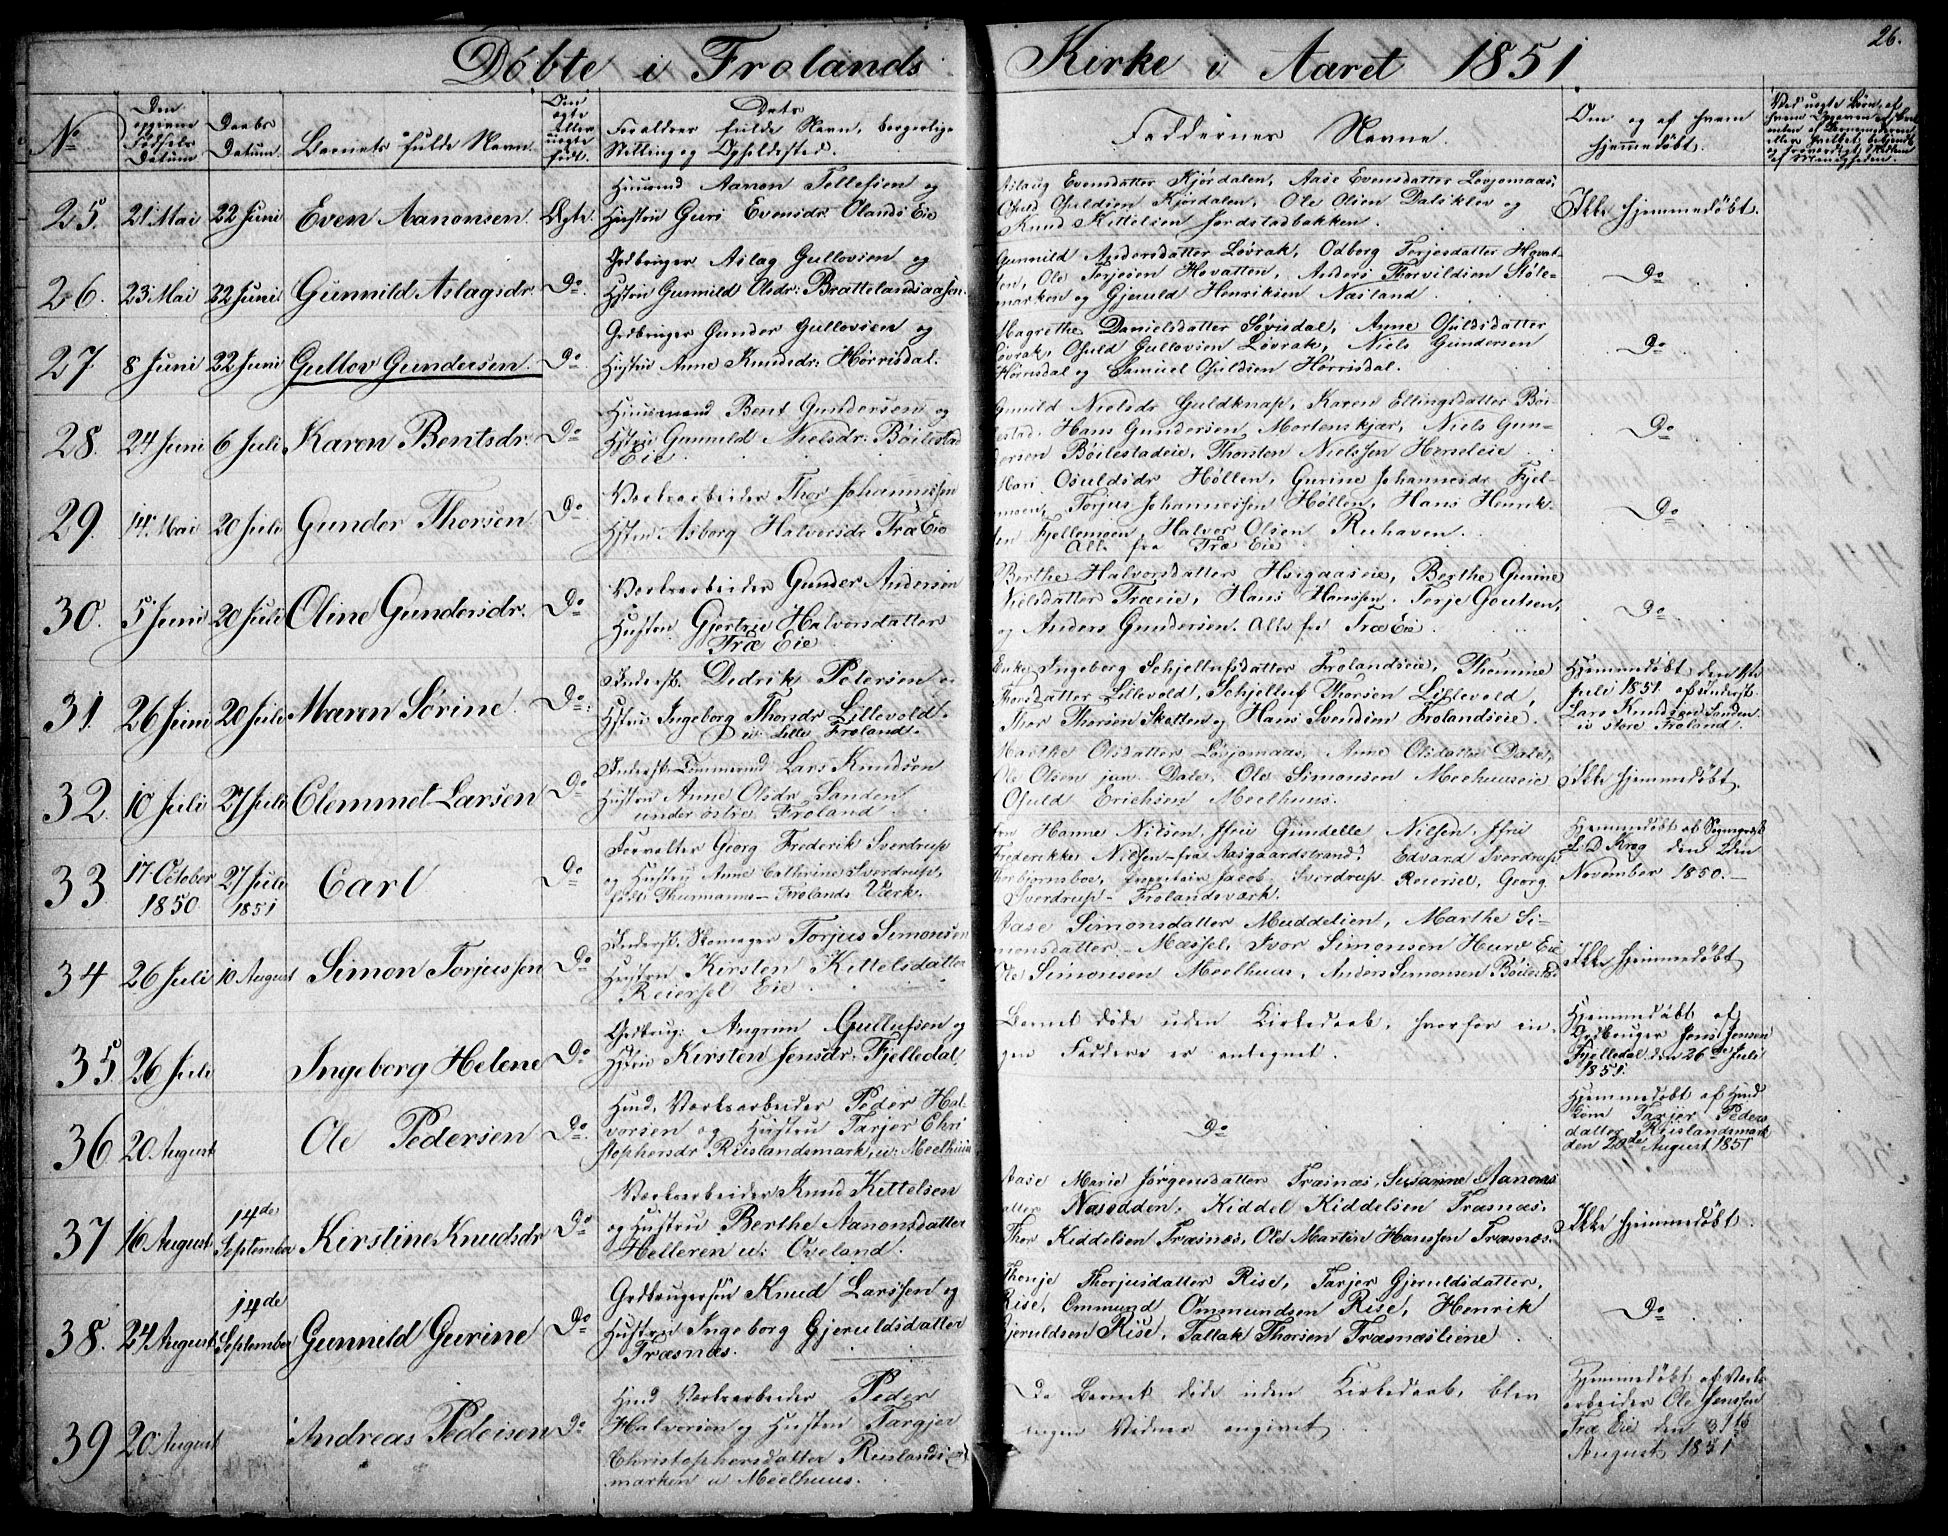 26.
Döbte i Frolands Kirke i Aaret 1851
No
Den opgivne Födsels Datum
Daabs Datum.
Barnets fulde Navn.
Om ægte eller uægte födt.
Dets Forældres fulde Navn, borgerlige Stilling og Opholdssted.
Faddernes Navne.
Om og af hvem hjemmedöbt.
25. 21 Mai 22 Juni Even Aanonsen. Ægte.
Huusmd Aanon Tellefsen og
Hustru Guri Evensdr Olands Eie
Aslaug Evensdatter Kjördalen, Aase Evensdatter Lövjomaas,
Osuld Osuldsen Kjördalen, Ole Olsen Dalsklev og
Knud Kittelsen Jordstadbakken.
Ikke hjemmedöbt.
26. 23 Mai 22 Juni Gunnild Aslagsdr Do
Grdbruger Aslag Gullovsen og
Hstru Gunnild Olsdr: Brattelandsaasen.
Gunnild Andersdatter Lövrak, Odborg Terjesdatter Hovat-
ten, Ole Terjesen Hovatten, Anders Thorvildsen Stöle-
marken og Gjeruld Henriksen Næsland.
Do
27. 8 Juni 22 Juni Gullov Gundersen. Do
Grdbruger Gunder Gullovsen og
Hustru Anne Knudsdr: Hörrisdal.
Magrethe Danielsdatter Lövisdal, Anne Osuldsdatter
Lövrak, Osuld Gullovsen Lövrak, Niels Gundersen
Hörrisdal og Samuel Osuldsen Hörrisdal.
Do
28. 24 Juni 6 Juli Karen Bentsdr: Do
Huusmand Bent Gundersen og
Hstru Gunnild Nielsdr: Böilestad
Eie.
Gunild Nielsdr Guldknap, Karen Ellingsdatter Böi-
lestad, Hans Gundersen, Mortenskjær, Niels Gun-
dersen Böilestadeie, Thorsten Nielssen Herseleie
Do
29. 14. Mai 20 Juli Gunder Thorsen Do
Værksarbeider Thor Johannessen
Hstru Asborg Halvorsdr Træ Eie
Mari Osuldsdr Höllen, Gurine Johannesdr Fjel-
moen, Torjus Johannessen Höllen, Hans Henrik-
sen Fjellemoen, Halvor Olsen Ruhaven.
Alle fra Træ Eie
Do
30. 5 Juni 20 Juli Oline Gundersdr. Do
Værksarbeider Gunder Andersen
Hustru Gjertrud Halvorsdatter
Træ Eie
Berthe Halvorsdatter Haugaaseie, Berthe Gurine
Nielsdatter Træeie, Hans Hanssen. Terje Goutsen,
og Anders Gundersen. Alle fra Træ Eie.
Do
31. 26 Juni 20 Juli Maren Sörine. Do
Inderst. Didrik Petersen og
Hstru Ingeborg Thorsdr Lillevold.
u: Lille Froland.
Enke Ingeborg Schjellufsdatter Frolandseie, Thomine
Thorsdatter Lillevold, Schjelluf Thorsen Lillevold,
Thor Thorsen Skotten og Hans Svendsen Frolandseie.
Hjemmedöbt den
Juli 1851 af Inderst.
Lars Knudsen Sanden
u store Froland.
32. 10 Juli 27 Juli Clemmet Larsen Do
Inderst Tömmermd Lars Knudsen
Hustru Anne Olsdr Sanden
under östre Froland.
Marthe Olsdatter Lövjomaas, Anne Olsdatter Dale,
Ole Olsen jun. Dale, Ole Simonsen Meelhuuseie
Osuld Erichsen Meelhuus.
Ikke hjemmedöbt.
33 17. October 1850 27 Juli 1851 Carl Do
Forvalter Georg Frederik Sverdrup
og Hustru Anne Cathrine Sverdrup,
födt Thurmann - Frolands Værk.
Hanne Nilsen, Gundelle Nilsen,
Frederikke Nilsen - fra Aasgaardstrand, Edvard Sverdrup
Thorbjörnsboe, Jacob Sverdrup Reiersel, Georg
Sverdrup - Frolandsværk.
Hjemmedöbt af Sognepræst
Krog den 2den
November 1850.
34 26 Juli 10 August Simon Torjussen Do
Inderst. Skomager Torjus Simonsen
Hustru Kirsten Kittelsdatter
Reiersel Eie.
Aase Simonsdatter Muddelien, Marthe Si-
monsdatter - Massel, Ivor Simonsen Hurv Eie
Ole Simonsen Meelhuus, Anders Simonsen Böilestad
Ikke hjemmedöbt
35. 26 Juli Ingeborg Helene Do
Grdbrug: Angrim Gullufsen og
Hstru Kirsten Jensdr: Fjelledal.
Barnet döde uden Kirkedaab, hvorfor in-
gen Faddere er antegnet.
Hjemmedöbt af
Grdbruger Jens Jensen
Fjelledal den 26de Juli
1851.
36 20 August Ole Pedersen Do
Huusmd. Værksarbeider Peder Hal-
vorsen og Hustru Tarjer Chri-
stophersdr Ruislandsmark, u: Meelhuus
Do
Hjemmedöbt af
Tarjer Peders
datter Ruislandsmark
den 20de August 1851
37 16 August 14de September Kirstine Knudsdr Do
Værksarbeider Knud Kittelsen
og Hustru Berthe Aanonsdatter
Helleren u: Oveland.
Aase Marie Jörgensdatter Træsnæs, Susanne Aanons
datter Næsodden, Kiddel Kiddelsen Træsnæs,
Thor Kiddelsen Træsnæs, Ole Martin Hanssen Træsnæs.
Ikke hjemmedöbt.
38. 24 August 14de September Gunnild Gurine Do
Grdbrugersön Knud Larssen og
Hustru Ingeborg Gjeruldsdatter
Træsnæs.
Thonje Thorjusdatter Rise, Tarjer Gjeruldsdatter,
Rise, Ommund Ommundsen Rise, Henrik
Gjeruldsen Rise, Tallak Thorsen Træsnæsliene
Do
39 20 August Andreas Pedersen Do
Huusmd Værksarbeider Peder
Halvorsen og Hustru Targjer
Christophersdatter Ruislands-
marken u Meelhuus.
Da Barnet döde uden Kirkedaab, blev
ingen Vidner angivet.
Hjemmedöbt af Værks-
arbeider Ole Jenssen
Træ Eie den 31te
August 1851